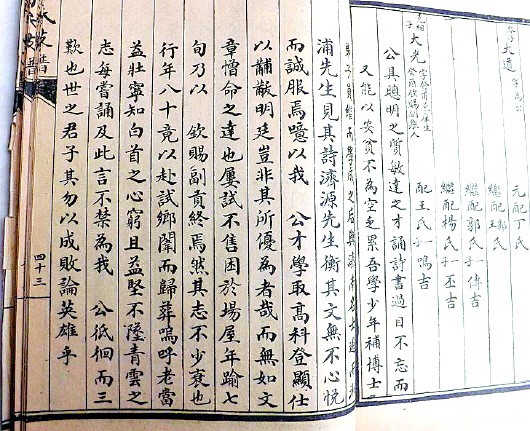 大道
元配丁氏
繼配郭氏
大光
繼配楊氏子一丕吉
配王氏子一鳴吉
公具聰明之質敏達之才誦詩書過目不忘而
又能以安貧不為空乏累吾學少年補博士
浦先生見其詩濟源先生衡其文無不心悅
而誠服焉噫以我 公才學取高科登顯仕
以黼黻明廷豈非其所優為者哉而無如文
章憎命之達也屢試不售困於場屋年踰七
旬乃以 欽賜副貢終焉然其志不少衰也
行年八十竟以赴試鄉闈而歸葬嗚呼老當
益壯寧知白首之心窮且益堅不墜青雲之
志每嘗誦及此言不禁為我 公低徊而三
歎也世之君子其勿以成敗論英雄乎
四十三